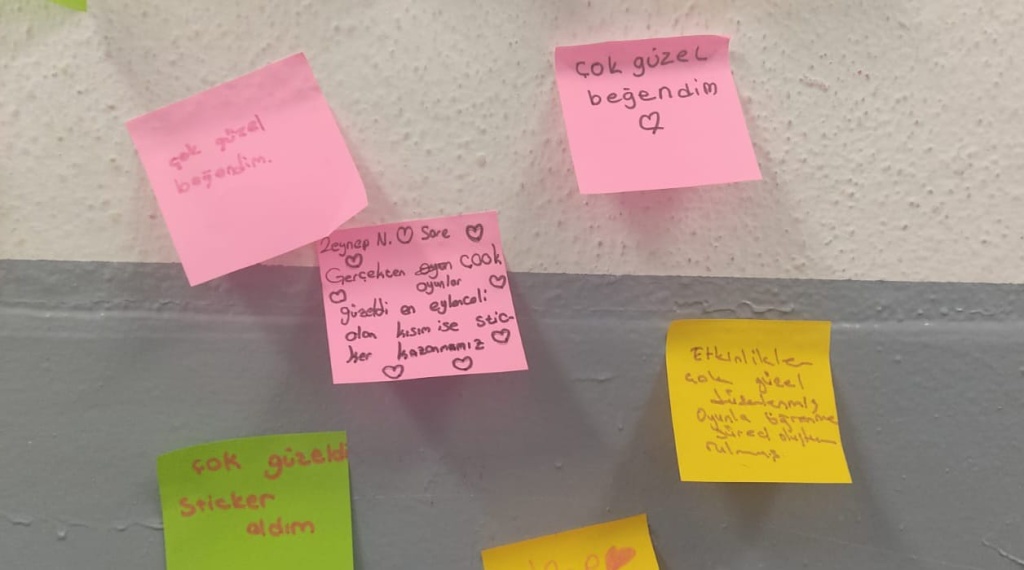 çok güzel
beğendim.
çok güzel
beğendim
Zeynep N. Sare
Gerçekten oyun ÇOOK
oyunlar
güzeldi en eğlenceli
olan kısım ise stic-
ker kazanmamız
Etkinlikler
çok güzel
düzenlenmiş
Oyunla öğrenme
süreci oluştu
rulmuş
çok güzeldi
Sticker
aldım